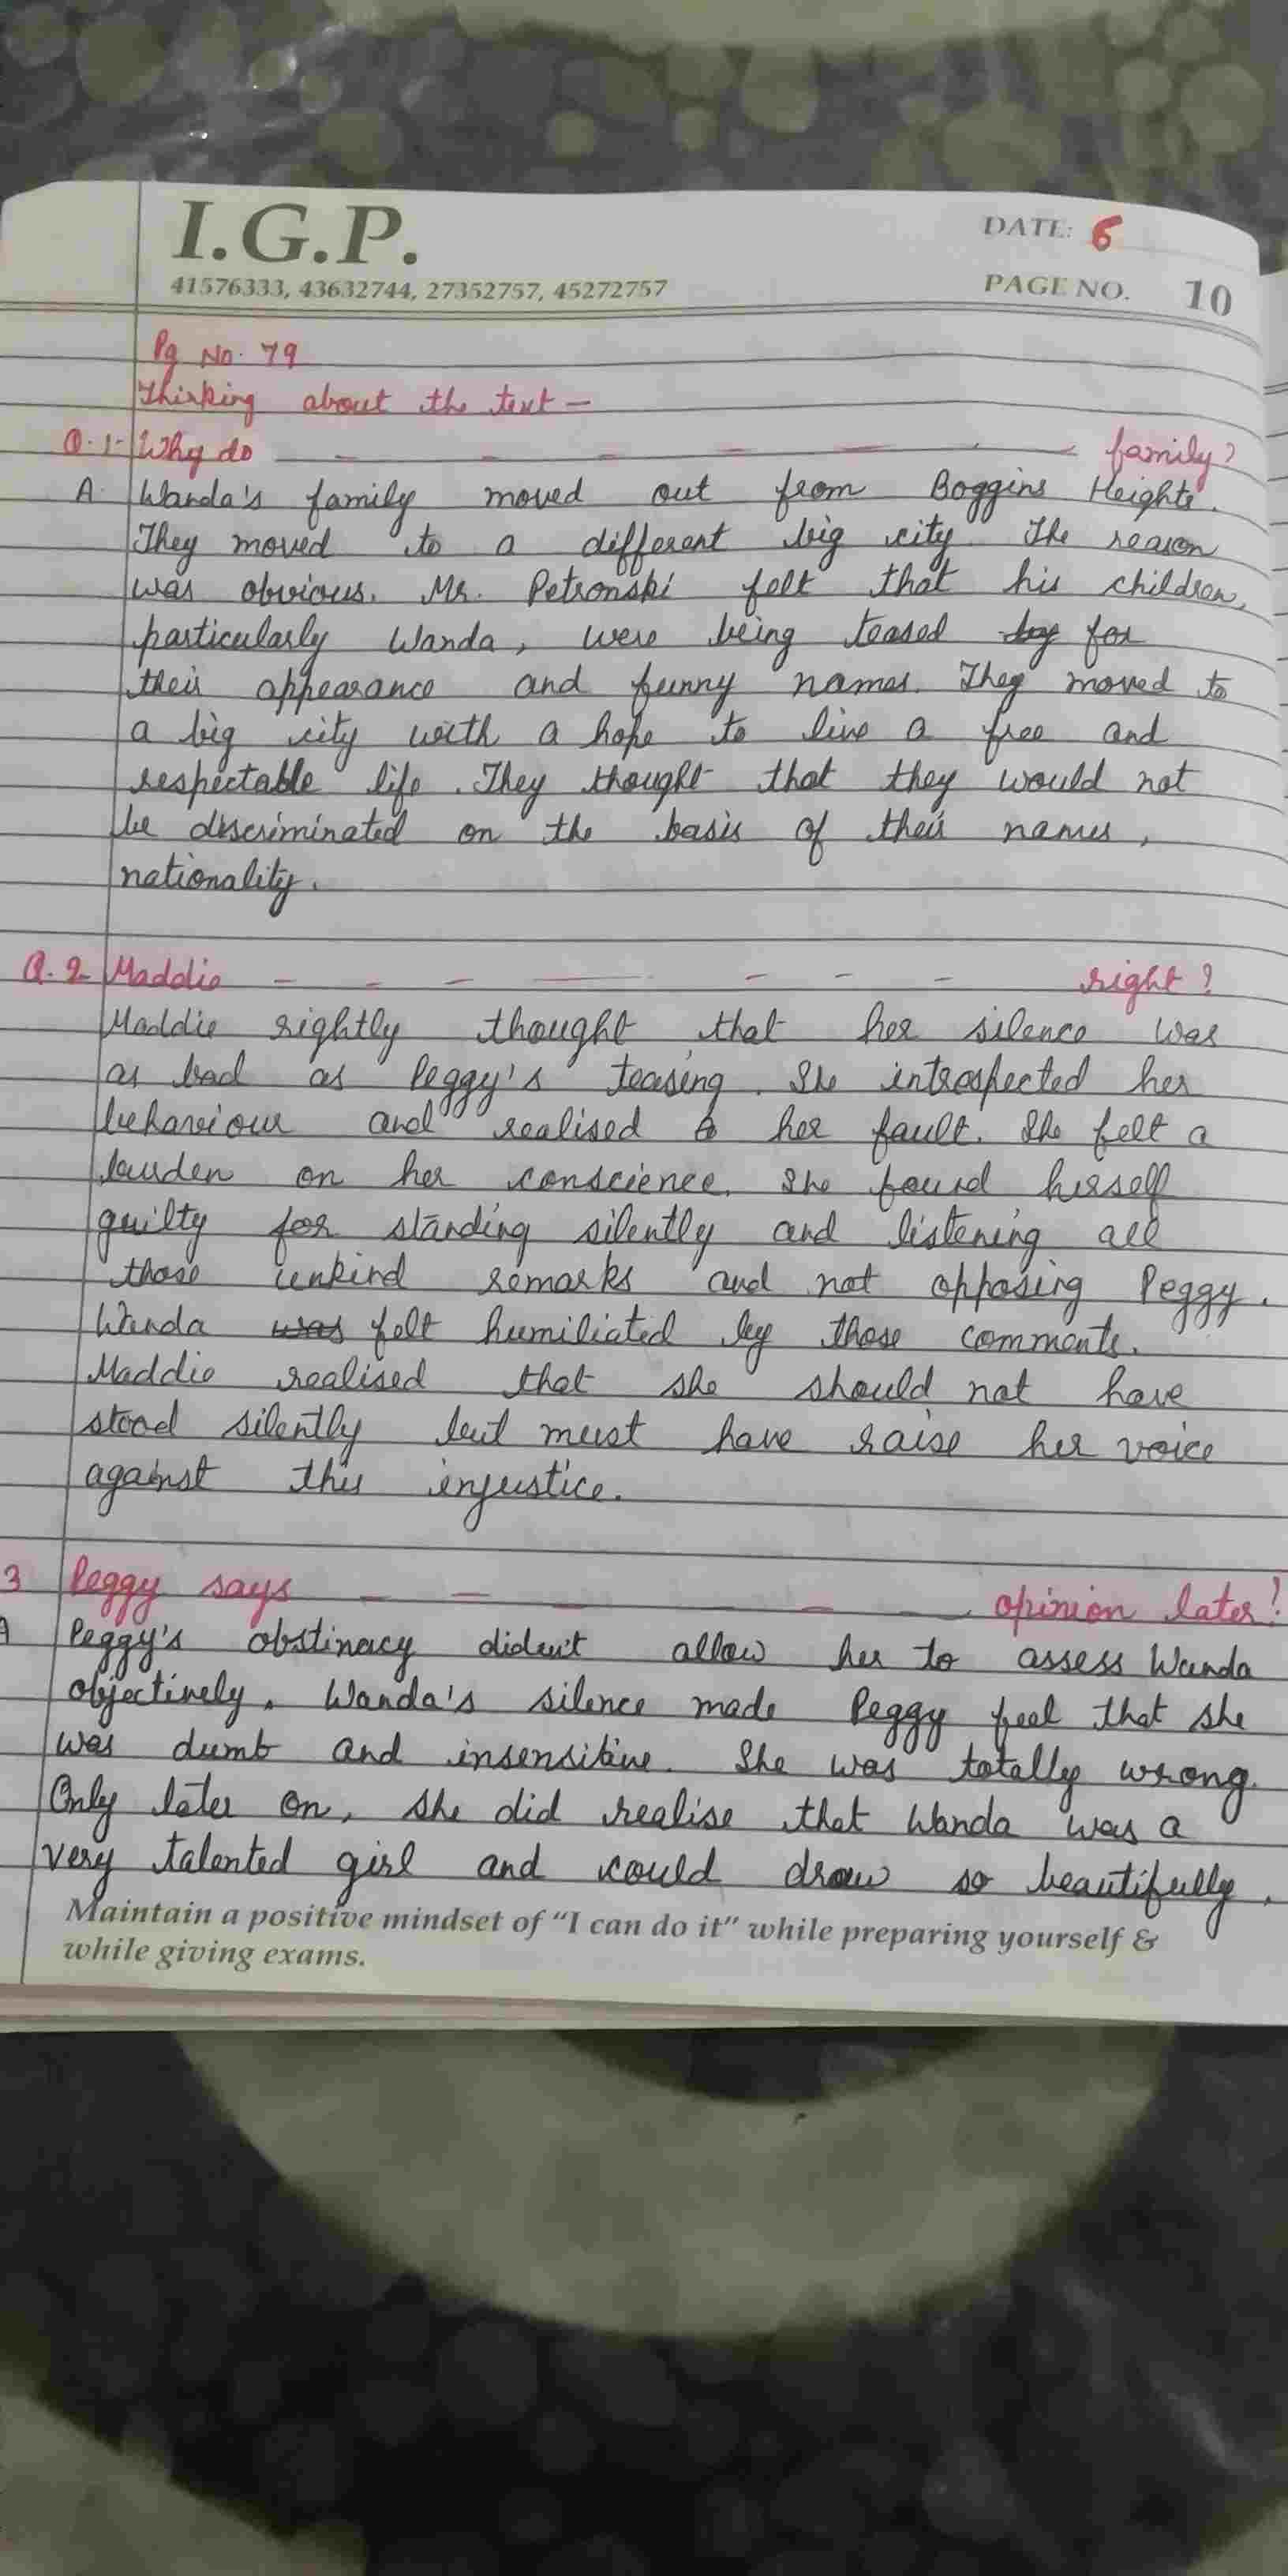 I.G.P.
41576333, 43632744, 27352757, 45272757
DATE: 6
PAGE NO. 10
Pg No. 79
Thinking about the text —
Q.1- Why do — — — — — — family?
A. Wanda's family moved out from Boggins Heights.
They moved to a different big city. The reason
was obvious. Mr. Petronski felt that his children,
particularly Wanda, were being teased by for
their appearance and funny names. They moved to
a big city with a hope to live a free and
respectable life. They thought that they would not
be discriminated on the basis of their names,
nationality.
Q.2 Maddie — — — — — — — right?
Maddie rightly thought that her silence was
as bad as Peggy's teasing. She introspected her
behaviour and realised her fault. She felt a
burden on her conscience. She found herself
guilty for standing silently and listening all
those unkind remarks and not opposing Peggy.
Wanda was felt humiliated by those comments.
Maddie realised that she should not have
stood silently but must have raise her voice
against this injustice.
3 Peggy says — — — — — opinion later?
A Peggy's obstinacy didn't allow her to assess Wanda
objectively. Wanda's silence made Peggy feel that she
was dumb and insensitive. She was totally wrong.
Only later on, she did realise that Wanda was a
very talented girl and could draw so beautifully.
Maintain a positive mindset of "I can do it" while preparing yourself &
while giving exams.